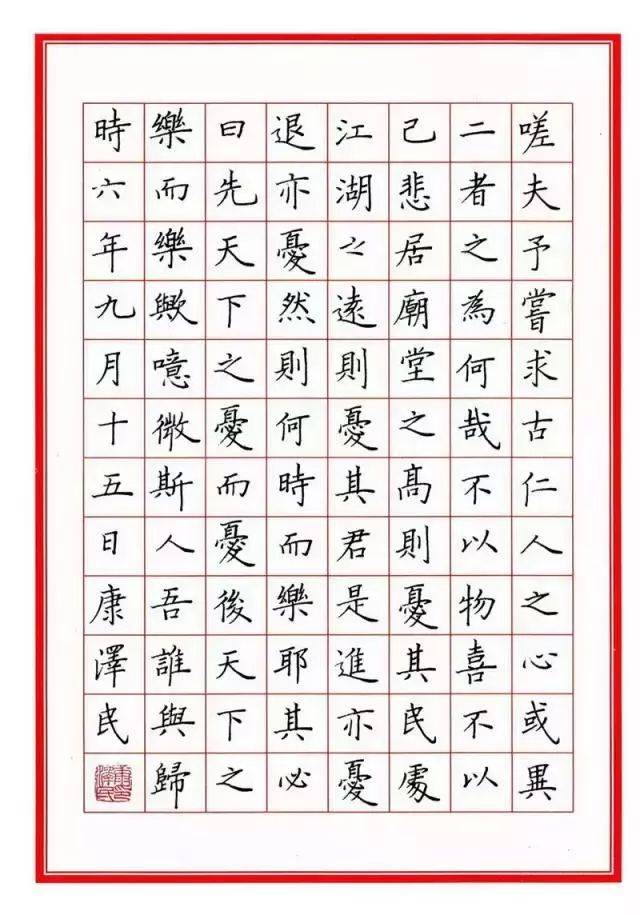 嗟夫予嘗求古仁人之心或異
二者之為何哉不以物喜不以
己悲居廟堂之髙則憂其民處
江湖之遠則憂其君是進亦憂
退亦憂然則何時而樂耶其必
曰先天下之憂而憂後天下之
樂而樂歟噫微斯人吾誰與歸
時六年九月十五日康澤民